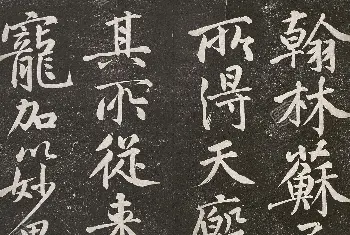 翰林蘇子
所得天廄
其所從來
寵加以妙墨